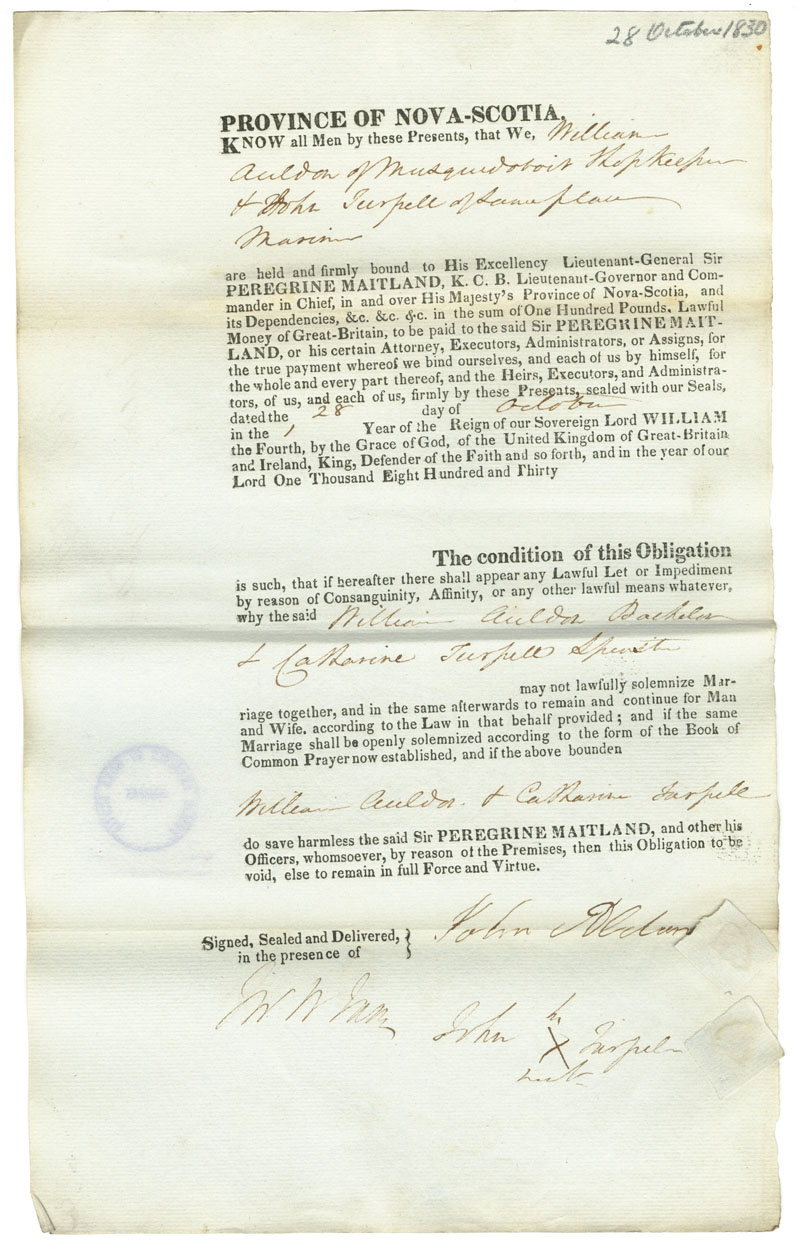 28 October 1830
PROVINCE OF NOVA-SCOTIA,
KNOW all Men by these Presents, that We, William
Auldon of Musquodoboit Shopkeeper
& John Turpell of same place
Mariner
are held and firmly bound to His Excellency Lieutenant-General Sir
PEREGRINE MAITLAND, K. C. B. Lieutenant-Governor and Com-
mander in Chief, in and over His Majesty's Province of Nova-Scotia, and
its Dependencies, &c. &c. &c. in the sum of One Hundred Pounds, Lawful
Money of Great-Britain, to be paid to the said Sir PEREGRINE MAIT-
LAND, or his certain Attorney, Executors, Administrators, or Assigns, for
the true payment whereof we bind ourselves, and each of us by himself, for
the whole and every part thereof, and the Heirs, Executors, and Administra-
tors, of us, and each of us, firmly by these Presents, sealed with our Seals,
dated the 28 day of October
in the 1 Year of the Reign of our Sovereign Lord WILLIAM
the Fourth, by the Grace of God, of the United Kingdom of Great-Britain
and Ireland, King, Defender of the Faith and so forth, and in the year of our
Lord One Thousand Eight Hundred and Thirty
The condition of this Obligation
is such, that if hereafter there shall appear any Lawful Let or Impediment
by reason of Consanguinity, Affinity, or any other lawful means whatever,
why the said William Auldon Bachelor
& Catharine Turpell Spinster
may not lawfully solemnize Mar-
riage together, and in the same afterwards to remain and continue for Man
and Wife. according to the Law in that behalf provided; and if the same
Marriage shall be openly solemnized according to the form of the Book of
Common Prayer now established, and if the above bounden
William Auldon & Catharine Turpell
do save harmless the said Sir PEREGRINE MAITLAND, and other his
Officers, whomsoever, by reason of the Premises, then this Obligation to be
void, else to remain in full Force and Virtue.
Signed, Sealed and Delivered,
in the presence of
John Aldon
W W
John his X Turpel
mark